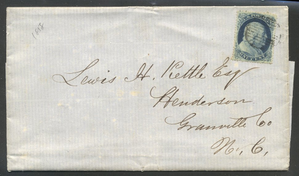 Lewis H. Kettle Esq
Henderson
Granville Co
N. C.